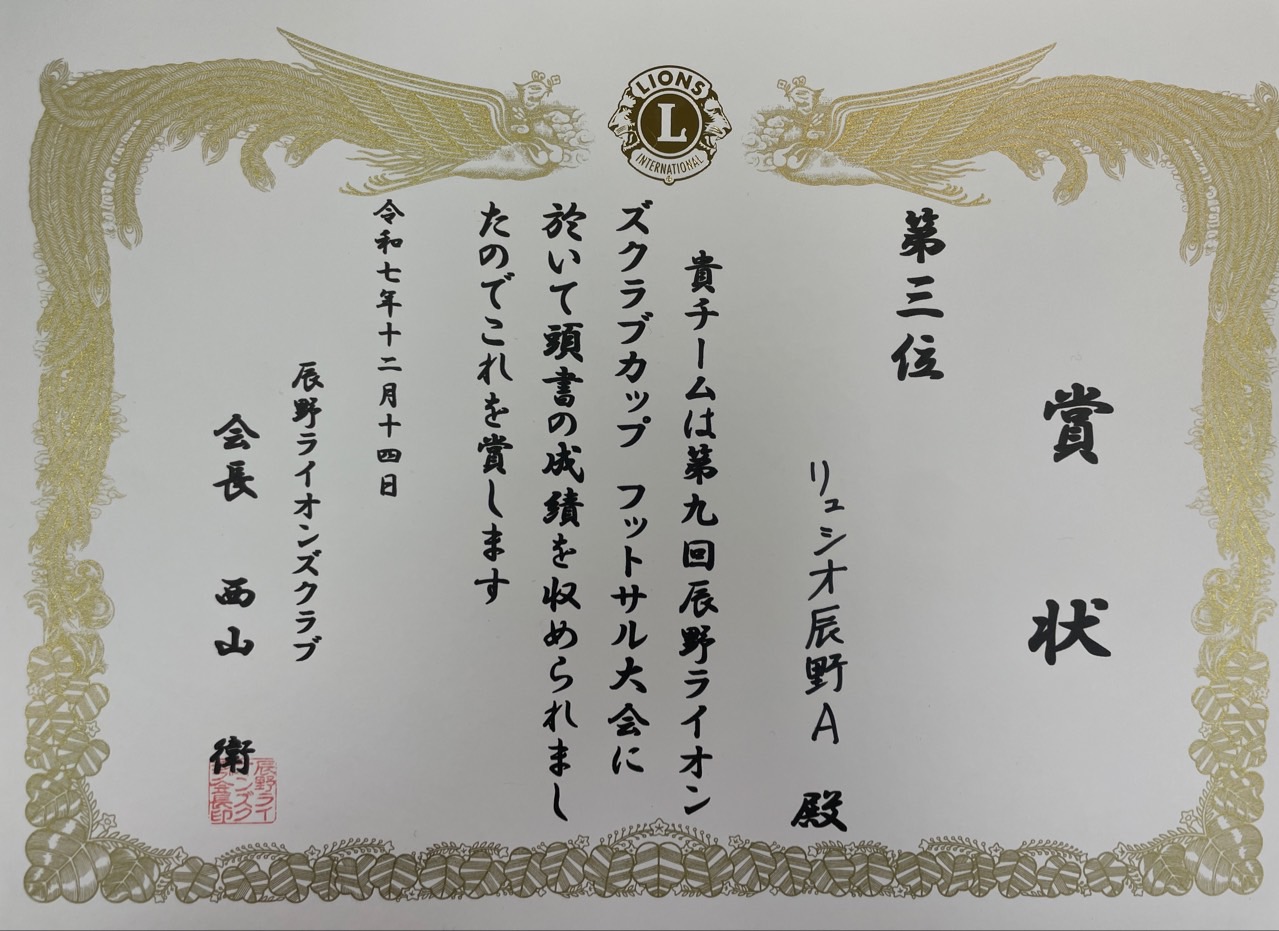 LIONS
L
INTERNATIONAL
賞状
第三位
リュシオ辰野A 殿
貴チームは第九回辰野ライオン
ズクラブカップ フットサル大会に
於いて頭書の成績を収められまし
たのでこれを賞します
令和七年十二月十四日
辰野ライオンズクラブ
会長 西山 衛
辰野ライ
オンズク
ラブ会長印